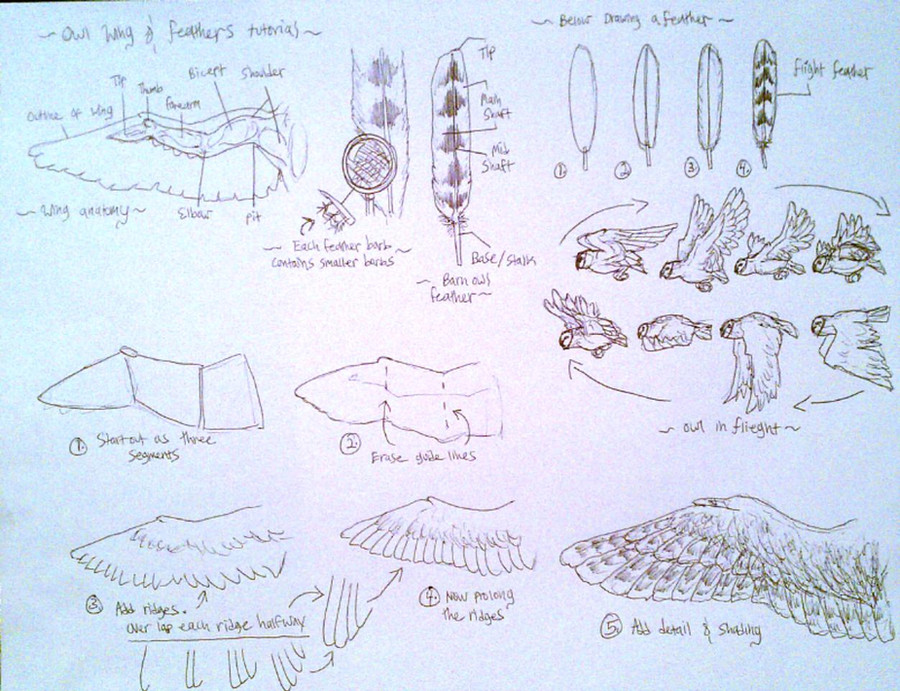 ~ Owl Wing & feathers tutorial ~
Outline of wing
Tip
Thumb
forearm
Bicept
Shoulder
~ Wing anatomy ~
Elbow
pit
~ Each feather barb ~
contains smaller barbs
Tip
Main
Shaft
Mid
Shaft
Base/Stalk
~ Barn owls
feather ~
~ Below Drawing a feather ~
flight feather
1.
2.
3.
4.
~ owl in flieght ~
1. Start out as three
Segments
2.
Erase guide lines
3. Add ridges.
over lap each ridge halfway
4. Now prolong
the ridges
5. Add detail & shading